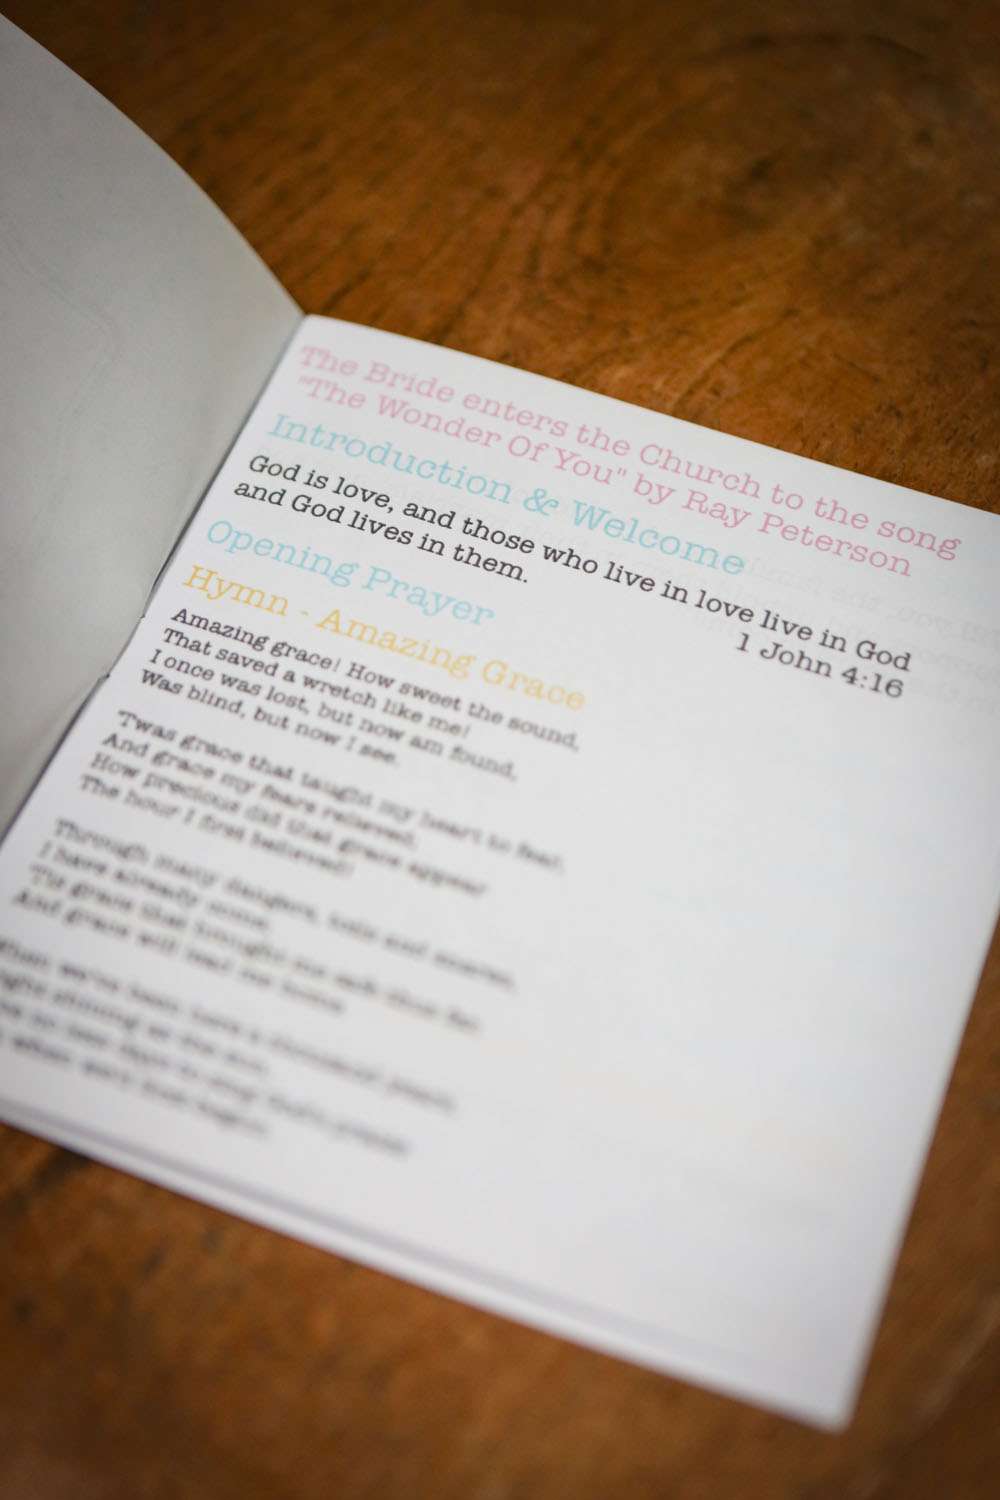 The Bride enters the Church to the song
"The Wonder Of You" by Ray Peterson
Introduction & Welcome
God is love, and those who live in love live in God
and God lives in them.
1 John 4:16
Opening Prayer
Hymn - Amazing Grace
Amazing grace! How sweet the sound,
That saved a wretch like me!
I once was lost, but now am found,
Was blind, but now I see.
'Twas grace that taught my heart to fear,
And grace my fears relieved,
How precious did that grace appear
The hour I first believed!
Through many dangers, toils and snares,
I have already come.
'Tis grace that brought me safe thus far,
And grace will lead me home